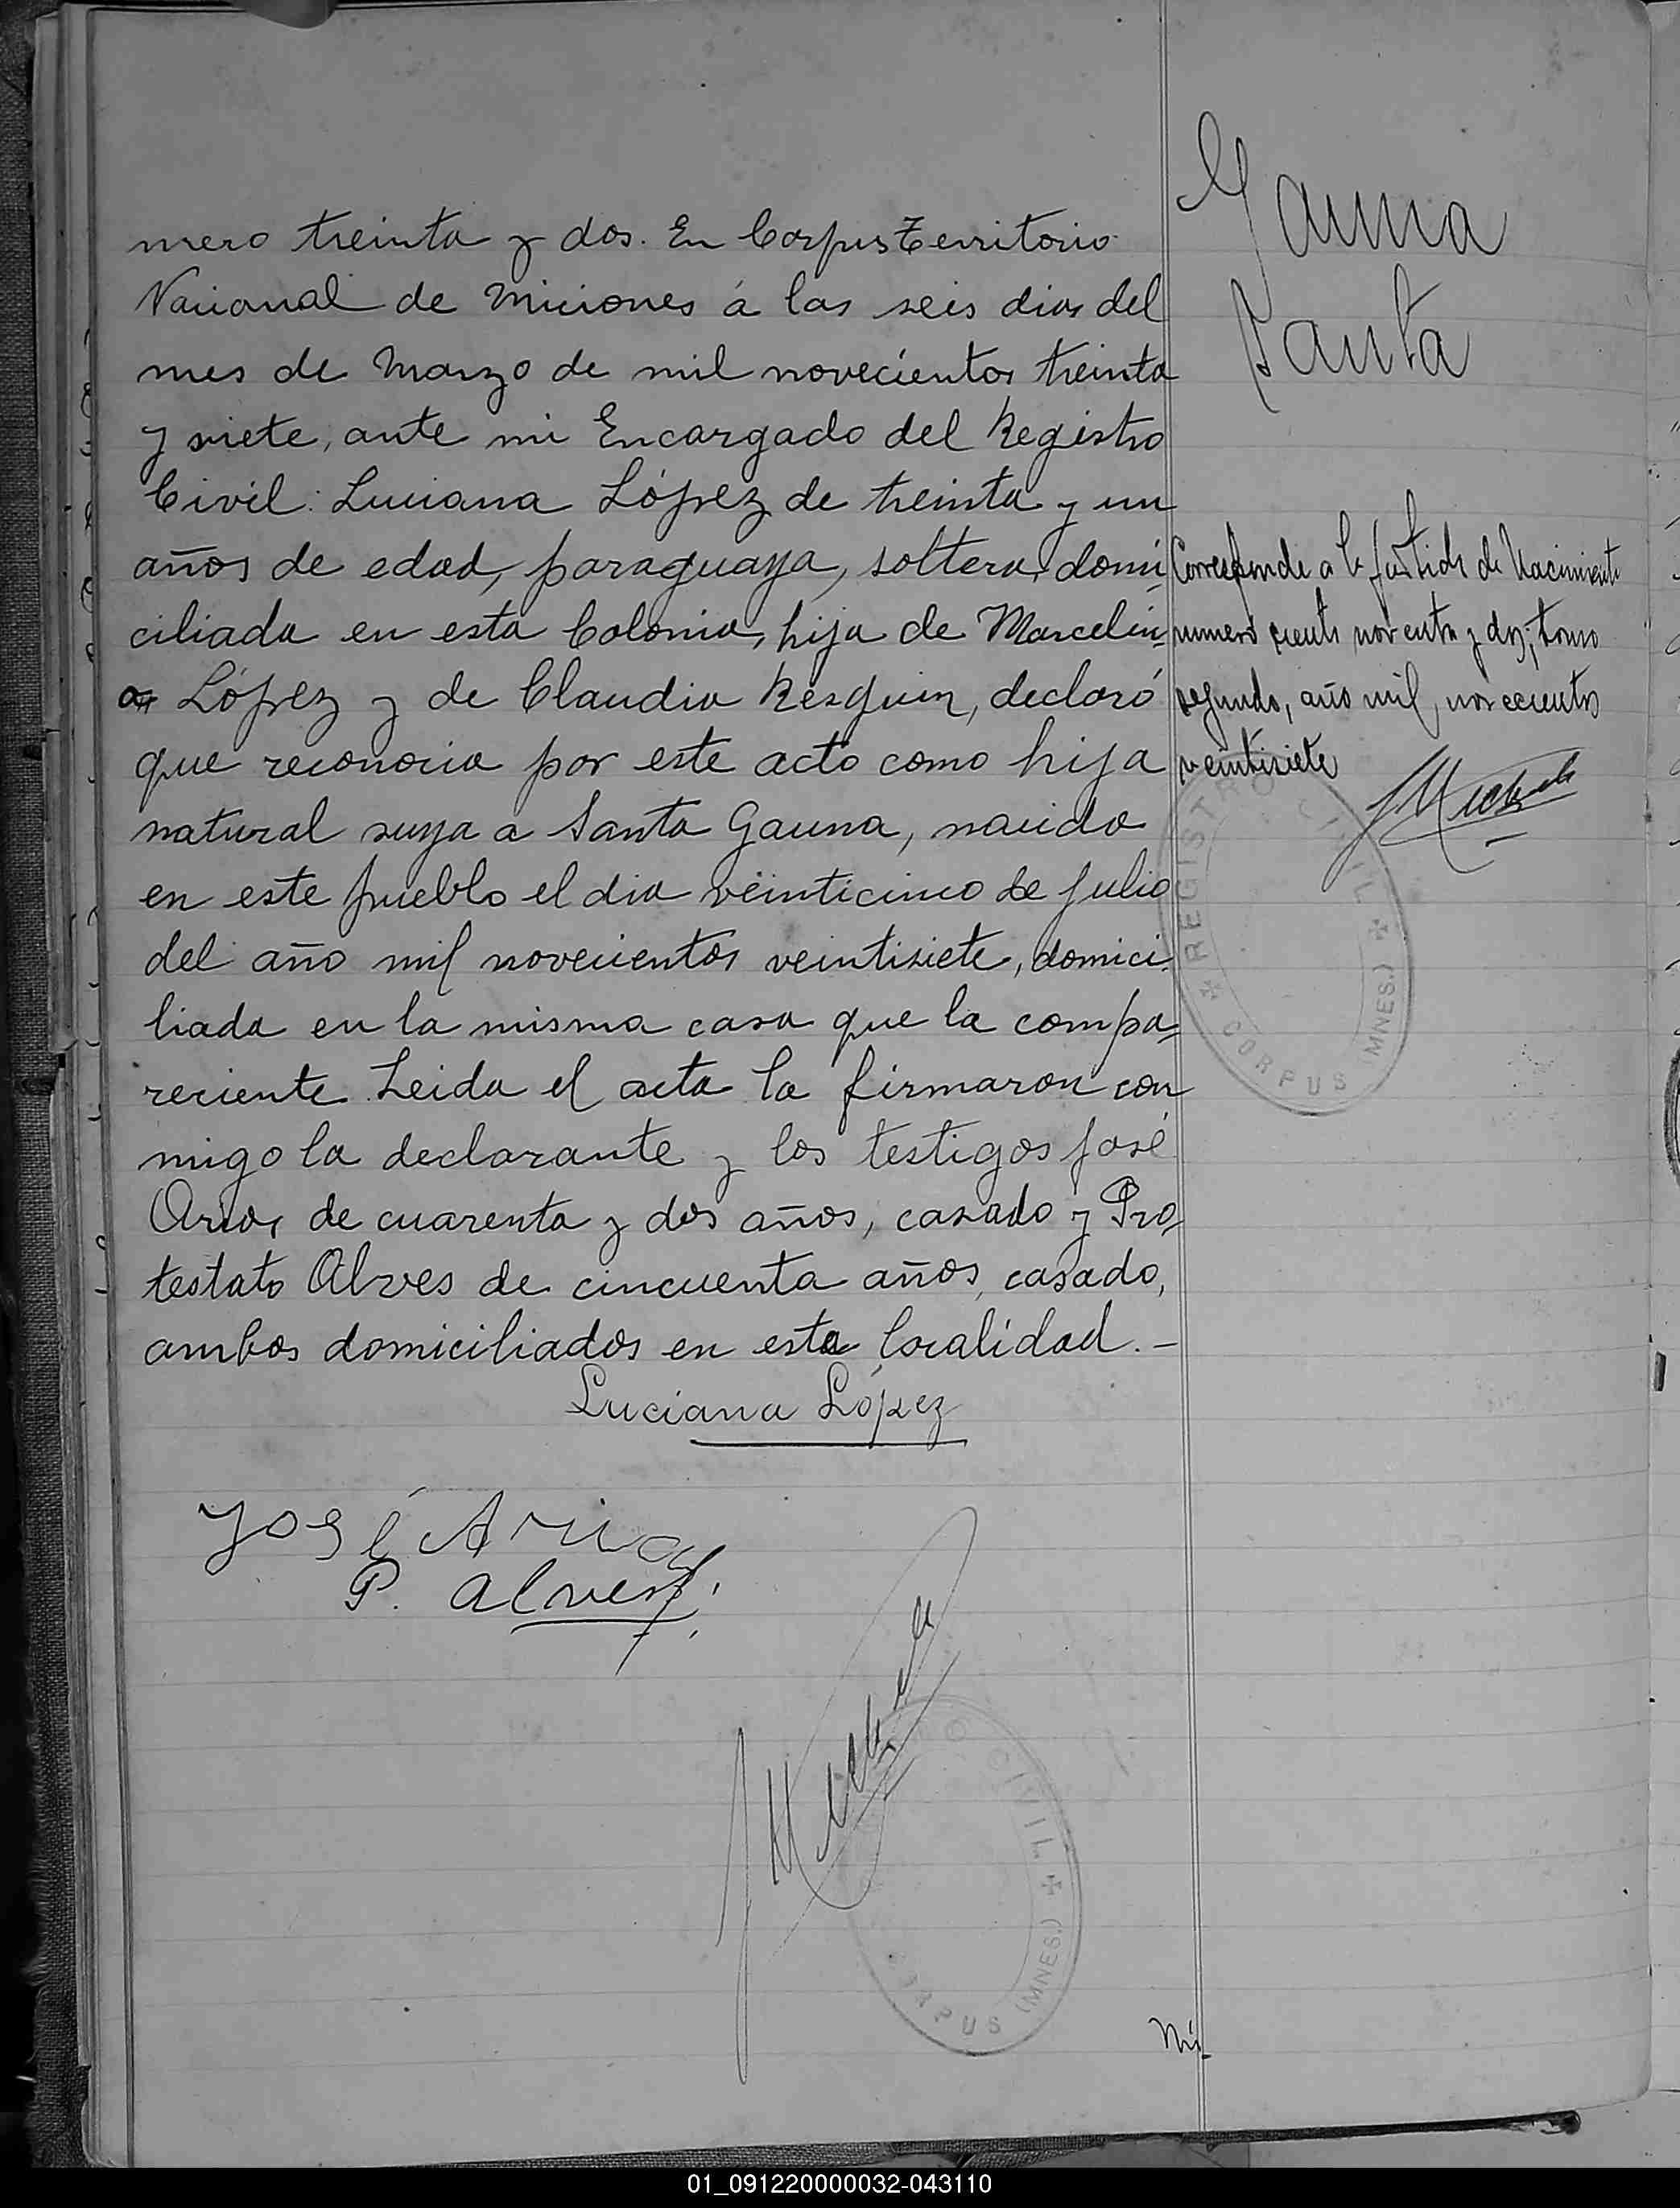 mero treinta y dos. En Corpus Territorio
Nacional de Miciones á las seis dias del
mes de Marzo de mil novecientos treinta
y siete, ante mi Encargado del Registro
Civil: Luciana López de treinta y un
años de edad, paraguaya, soltera, domi
ciliada en esta Colonia, hija de Marcelin-
a López y de Claudia Resquin, declaró
que reconocia por este acto como hija
natural suya a Santa Gauna, nacida
en este pueblo el dia veinticinco de Julio
del año mil novecientos veintisiete, domici-
liada en la misma casa que la compa=
reciente. Leida el acta la firmaron con
migo la declarante y los testigos José
Arias de cuarenta y dos años, casado y Pro
testato Alves de cincuenta años, casado,
ambos domiciliados en esta localidad.-
Luciana López
José Arias
P. Alves
REGISTRO CIVIL
CORPUS (MNES.)
Gauna
Santa
Corresponde a la partida de Nacimiento
numero ciento noventa y dos, tomo
segundo, año mil novecientos
veintisiete
REGISTRO CIVIL
CORPUS (MNES.)
Nú-
01_091220000032-043110